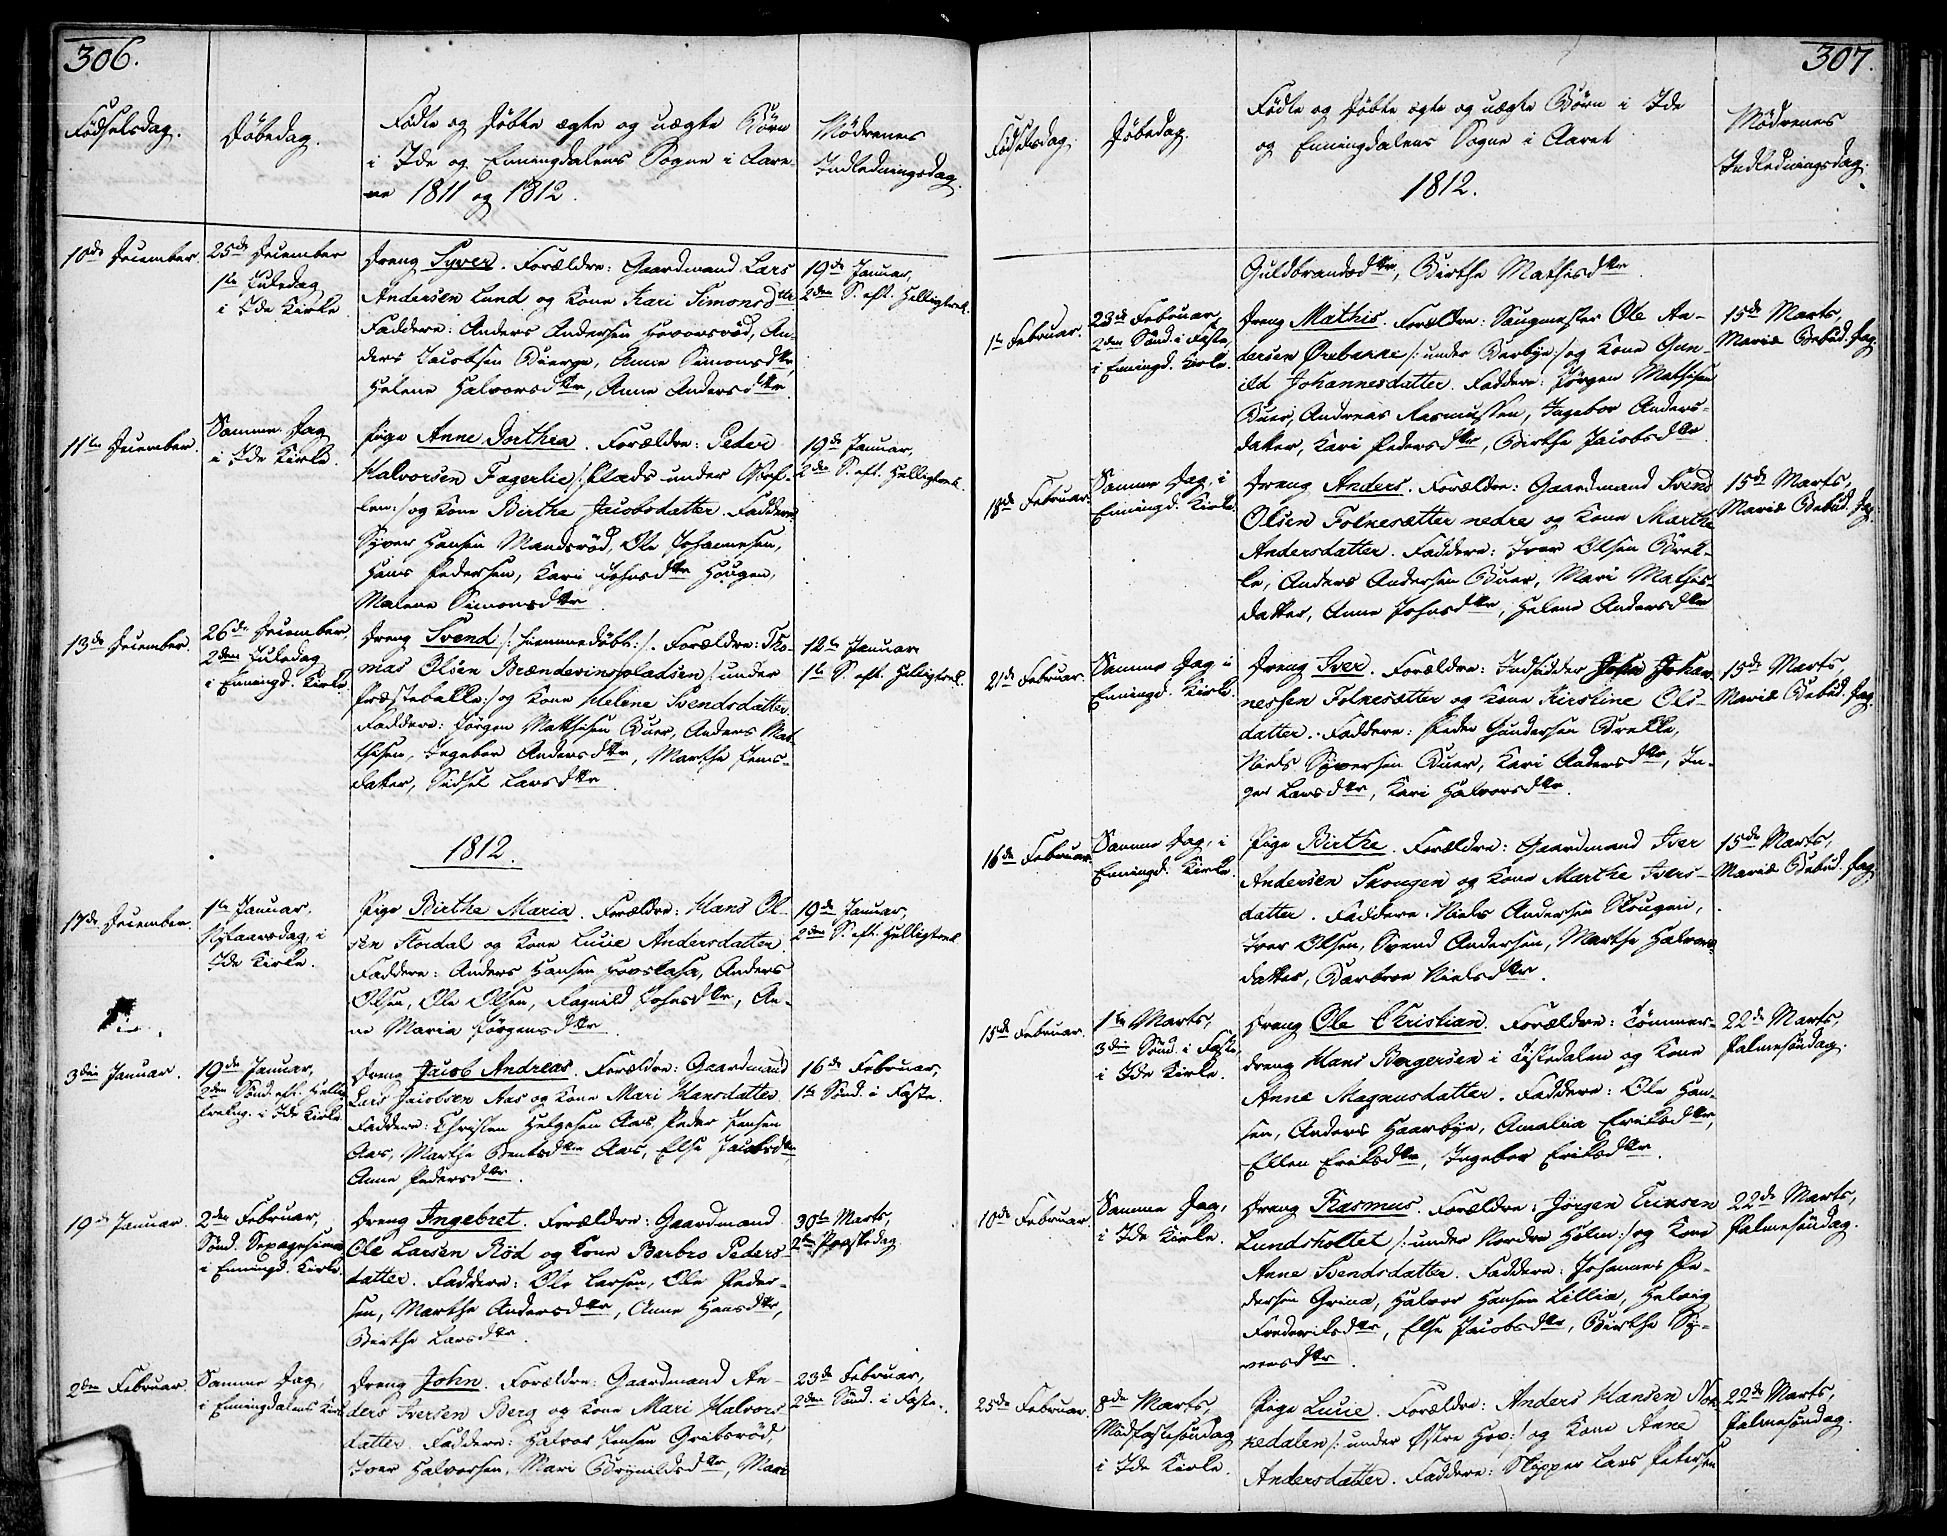 306.
Fødselsdag.
Døbedag.
Fødte og Døbte ægte og uægte Børn
i Ide og Enningdalens Sogne i Aare-
ne 1811 og 1812.
Mødrenes
Indledningsdag.
10de December.
25de December
1ste Juledag
i Ide Kirke
Dreng Syver. Forældre: Gaardmand Lars
Andersen Lund og Kone Kari Simonsdttr
Faddere: Anders Andersen, An-
ders Jacobsen, Anne Simonsdttr,
Helene Halvorsdttr, Anne Andersdttr
19de Januar,
2den S. eft. Helligtrek.
11te December.
Samme Dag
i Ide Kirke.
Pige Anne Dorthea. Forældre: Peder
Halvorsen Fagerlie /: Plads under
:/ og Kone Birthe Jacobsdatter. Faddere:
Syver Hansen Mandsrød, Ole Johannesen,
Hans Pedersen, Kari Johnsdttr Hougen,
Malene Simonsdttr
19de Januar,
2den S. eft. Helligtrek.
13de December.
26de December,
2den Juledag
i Enningd. Kirke
Dreng Svend /: hjemmedøbt :/. Forældre: Tho-
mas Olsen Brændevinspladsen /: under
Præstebakke :/ og Kone Helene Svendsdatter
Faddere: Jørgen Mathisen Buer, Anders Mat-
hisen, Ingebor Andersdttr, Marthe Jens-
datter, Sidsel Larsdttr
12te Januar
1ste S. eft. Helligtrek.
1812.
17de December.
1ste Januar,
Nytaarsdag, i
Ide Kirke.
Pige Birthe Maria. Forældre: Hans Ol-
sen Kordal og Kone Lucie Andersdatter
Faddere: Anders Hansen, Anders
Olsen, Ole Olsen, Ragnild Johnsdttr, An-
ne Maria Jørgensdttr
19de Januar,
2den S. eft. Helligtrek.
3die Januar.
19de Januar,
2den Sønd. eft. Hellig
trekng. i Ide Kirke
Dreng Jacob Andreas. Forældre: Gaardmand
Lars Jacobsen Aas og Kone Mari Hansdatter
Faddere: Christen Helgesen Aas, Peder Jensen
Aas, Marthe Bentsdttr Aas, Else Jacobsdttr,
Anne Pedersdttr.
16de Februar,
1ste Sønd. i Faste.
19de Januar.
2den Februar,
Sønd. Sexagesima
i Enningd. Kirke.
Dreng Ingebret. Forældre: Gaardmand
Ole Larsen Rød og Kone Barbro Peders
datter. Faddere: Ole Larsen, Ole Peder-
sen, Marthe Andersdttr, Anne Hansdttr,
Birthe Larsdttr.
30te Marts,
2den Paaskedag.
2den Februar.
Samme Dag,
i Enningdalens Kirke
Dreng John. Forældre: Gaardmand An-
ders Iversen Berg og Kone Mari Halvors
datter. Faddere: Halvor Jensen Gribsrød,
Iver Halvorsen, Mari Brynildsdttr, Mari
23de Februar,
2den Sønd. i Faste.
307.
Fødselsdag.
Døbedag.
Fødte og Døbte ægte og uægte Børn i Ide
og Enningdalens Sogne i Aaret
1812.
Mødrenes
Indledningsdag.
Guldbrandsdttr, Birthe Mathisdttr.
1ste Februar.
23de Februar,
2den Sønd. i Faste,
i Enningd. Kirke.
Dreng Mathis. Forældre: Saugmester Ole An-
dersen Ørebakke /: under Berbye :/ og Kone Gun-
ild Johannesdatter. Faddere: Jørgen Mathisen
Buer, Andreas Rasmussen, Ingebor Anders-
datter, Kari Pedersdttr, Birthe Jacobsdttr
15de Marts,
Mariæ Bebud. Dag.
18de Februar
Samme Dag, i
Enningd. Kirke.
Dreng Anders. Forældre: Gaardmand Svend
Olsen Folkesætter nedre og Kone Marthe
Andersdatter. Faddere: Iver Olsen Brek-
ke, Anders Andersen Buer, Mari Mathis
datter, Anne Johnsdttr, Helene Andersdttr
15de Marts,
Mariæ Bebud. Dag
21de Februar.
Samme Dag i
Enningd. Kirke.
Dreng Iver. Forældre: Indsidder John Johan
nessen Folkesætter og Kone Kirstine Ols-
datter. Faddere: Peder Gundersen Brekke,
Niels Syversen Buer, Kari Andersdttr, In-
ger Larsdttr, Kari Halvorsdttr.
15de Marts,
Mariæ Bebud. Dag.
16de Februar
Samme Dag, i
Enningd. Kirke.
Pige Birthe. Forældre: Gaardmand Iver
Andersen Skougen og Kone Marthe Ivers-
datter. Faddere: Niels Andersen Skougen,
Iver Olsen, Svend Andersen, Marthe Halvors
datter, Barbroe Nielsdttr.
15de Marts,
Mariæ Bebud. Dag
15de Februar.
1ste Marts,
3die Sønd. i Faste,
i Ide Kirke.
Dreng Ole Christian. Forældre: Tømmer-
dreng Hans Borgersen i Tistedalen og Kone
Anne Magnusdatter. Faddere: Ole Han-
sen, Anders Haarbye, Amalia Eriksdttr,
Ellen Eriksdttr, Ingebor Eriksdttr.
22de Marts,
Palmesøndag.
10de Februar.
Samme Dag,
i Ide Kirke.
Dreng Rasmus. Forældre: Jørgen Eriksen
Lundsholtet /: under Nordre Holm :/ og Kone
Anne Svendsdatter. Faddere: Johannes Pe-
dersen Grina, Halvor Hansen Lillia, Helvig
Frederiksdttr, Else Jacobsdttr, Birthe Sy-
versdttr.
22de Marts,
Palmesøndag.
25de Februar.
8de Marts,
Midfastesøndag
i Ide Kirke.
Pige Lucie. Forældre: Anders Hansen Nok
kedalen /: under Østre Hov :/ og Kone Anne
Andersdatter. Faddere: Skipper Lars Petersen
22de Marts,
Palmesøndag.